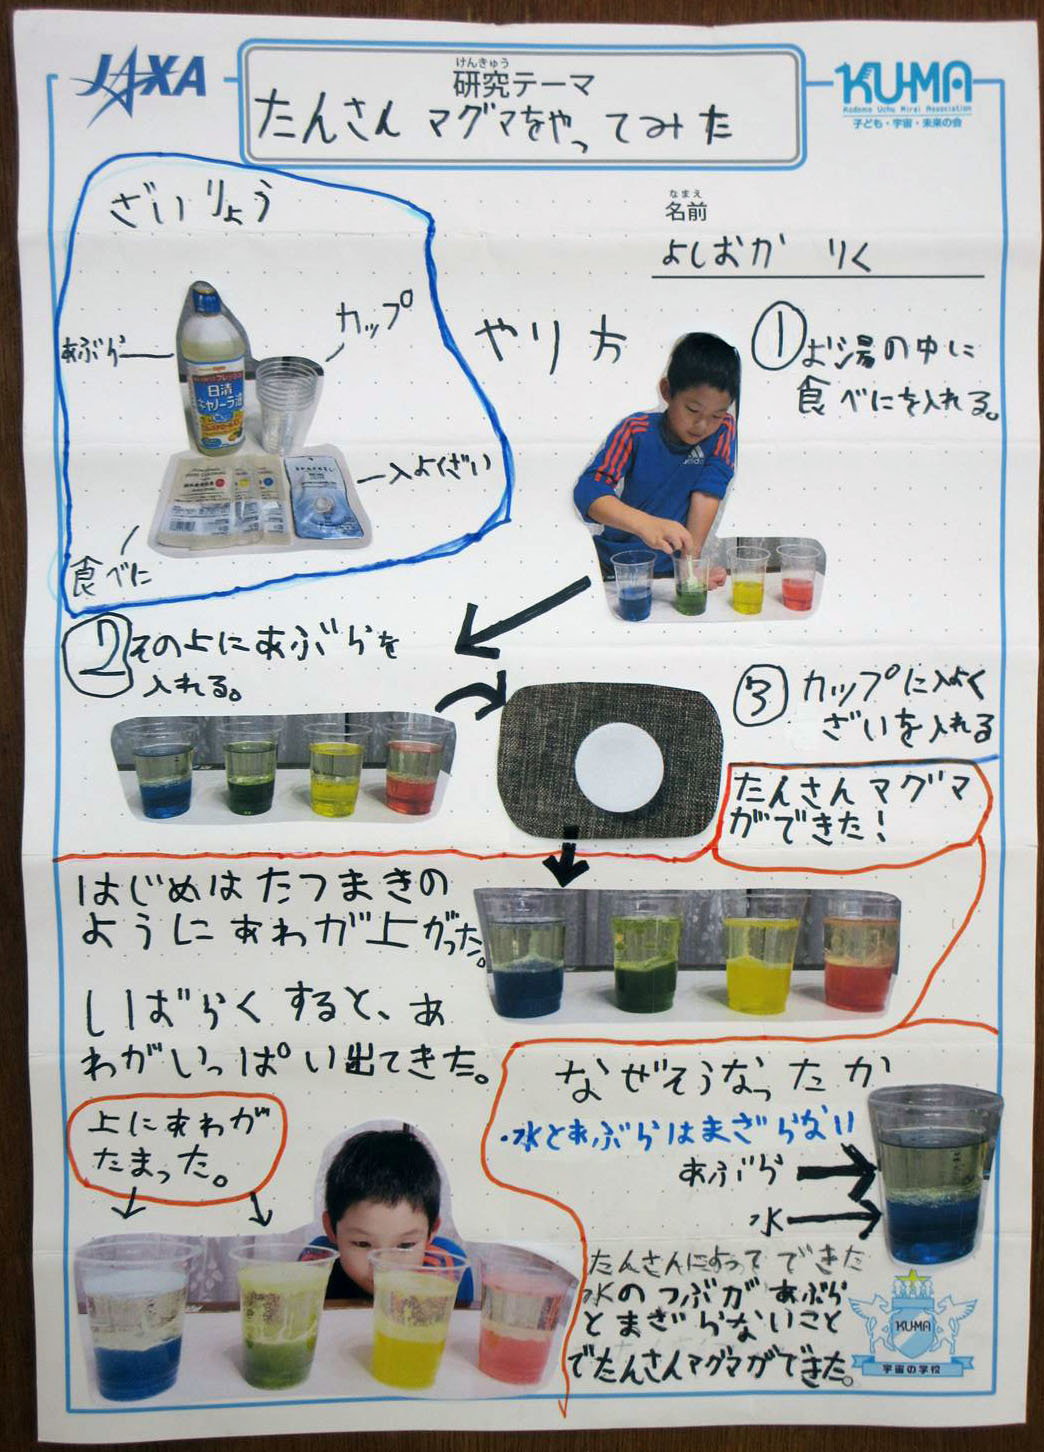 JAXA
けんきゅう
研究テーマ
たんさんマグマをやってみた
KU-MA
Kodomo Uchu Mirai Association
子ども・宇宙・未来の会
なまえ
名前
よしおか りく
ざいりょう
あぶら
カップ
日清
キャノーラ油
入よくざい
食べに
やり方
①お湯の中に
食べにを入れる。
②その上にあぶらを
入れる。
③カップに入よく
ざいを入れる
たんさんマグマ
ができた!
はじめはたつまきの
ようにあわが上がった。
しばらくすると、あ
わがいっぱい出てきた。
上にあわが
たまった。
なぜそうなったか
・水とあぶらはまざらない
あぶら
水
たんさんによってできた
水のつぶがあぶら
とまざらないこと
でたんさんマグマができた。
KUMA
宇宙の学校